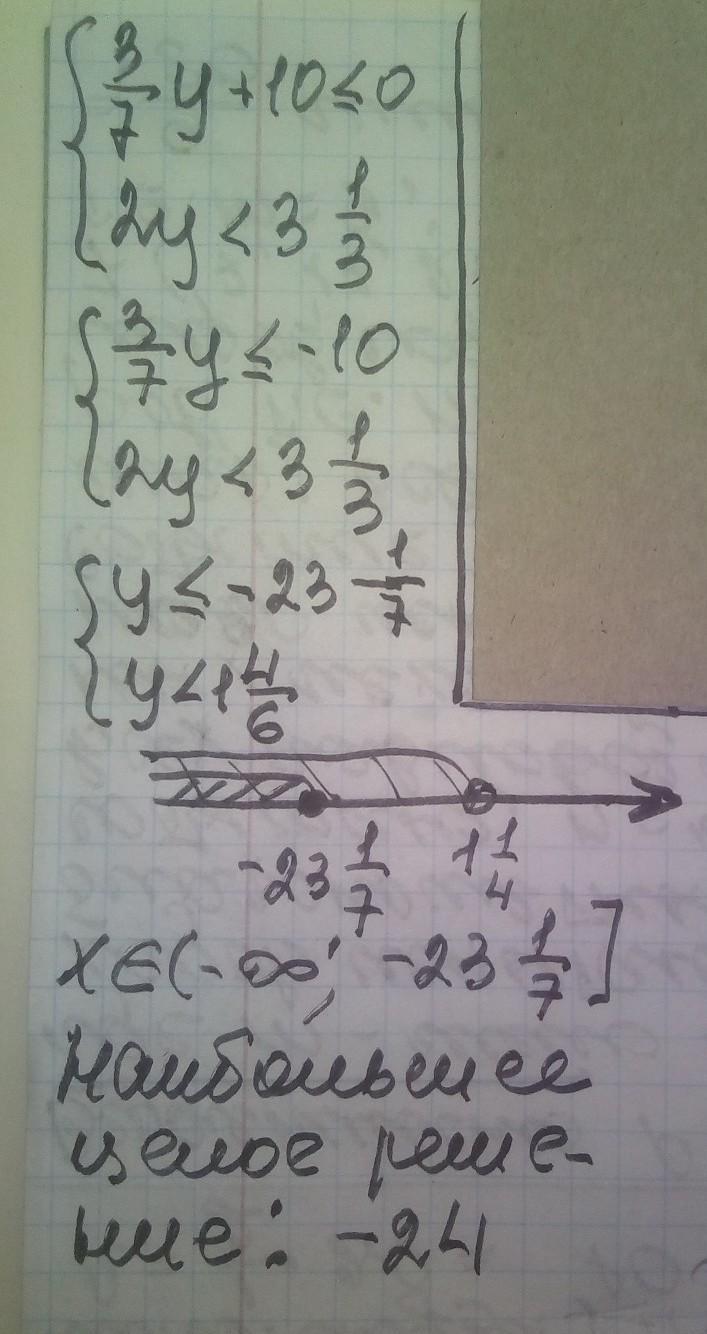 3/7 y + 10 ≤ 0
2y < 3 1/3
3/7 y ≤ -10
2y < 3 1/3
y ≤ -23 1/7
y < 1 4/6
-23 1/7 1 1/4
x ∈ (-∞; -23 1/7]
Наибольшее
целое реше-
ние: -24